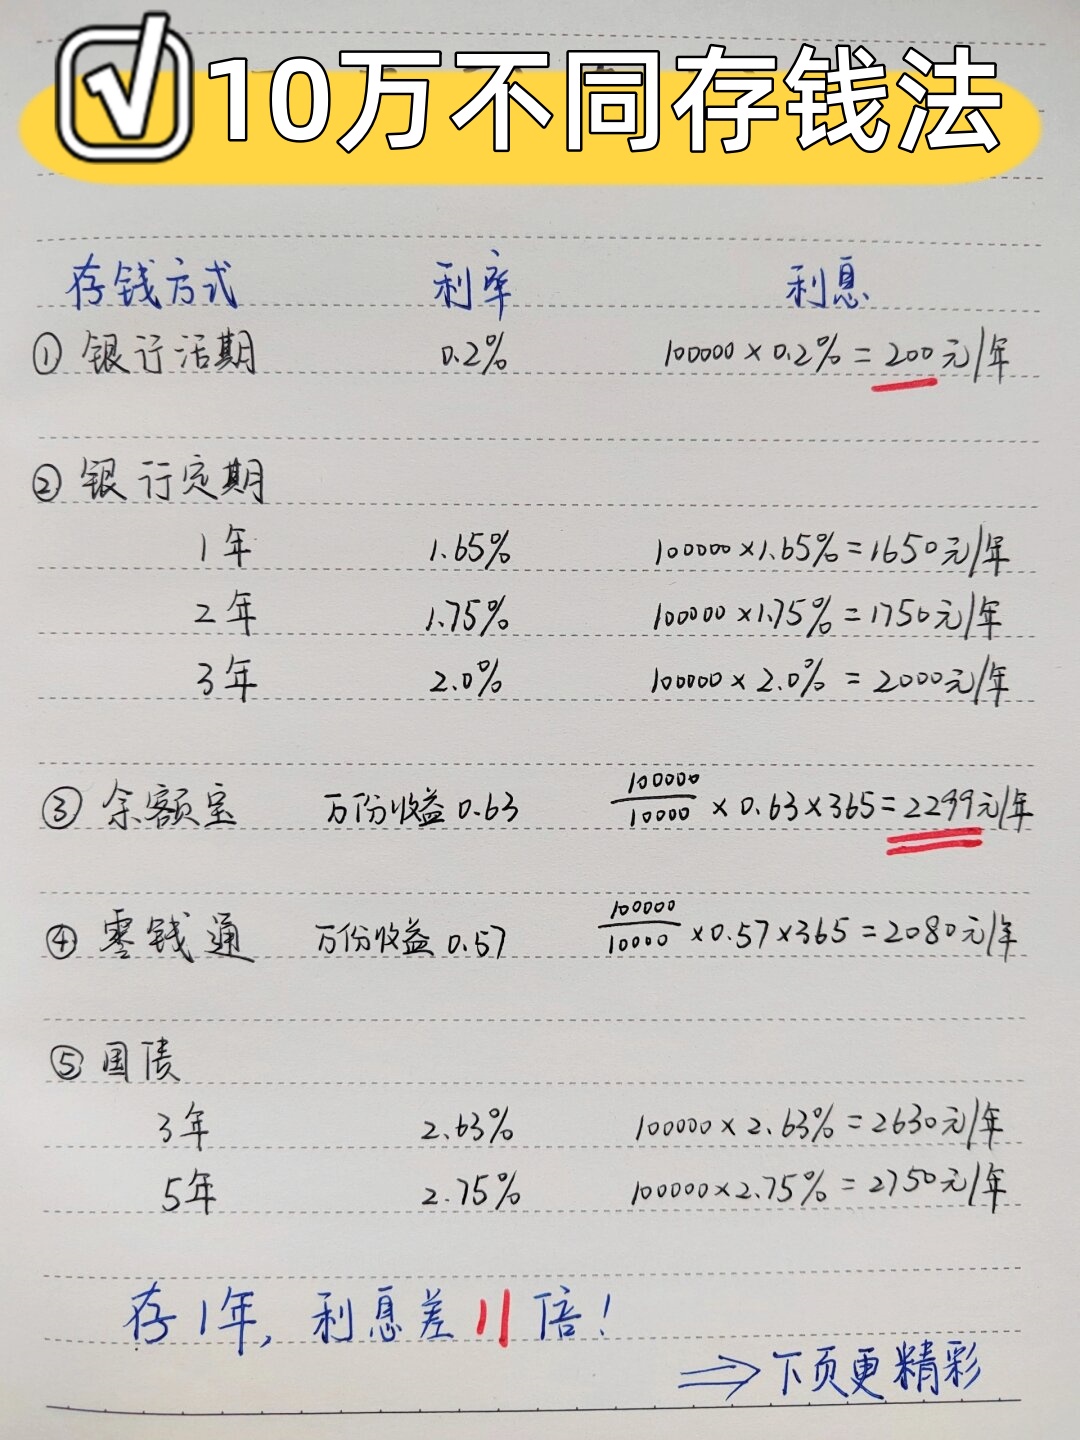 10万不同存钱法
存钱方式 利率 利息
① 银行活期 0.2% 100000×0.2%=200元/年
② 银行定期
1年 1.65% 100000×1.65%=1650元/年
2年 1.75% 100000×1.75%=1750元/年
3年 2.0% 100000×2.0%=2000元/年
③ 余额宝 万份收益 0.63 100000/10000×0.63×365=2299元/年
④ 零钱通 万份收益 0.57 100000/10000×0.57×365=2080元/年
⑤ 国债
3年 2.63% 100000×2.63%=2630元/年
5年 2.75% 100000×2.75%=2750元/年
存1年,利息差11倍!
⇒下页更精彩